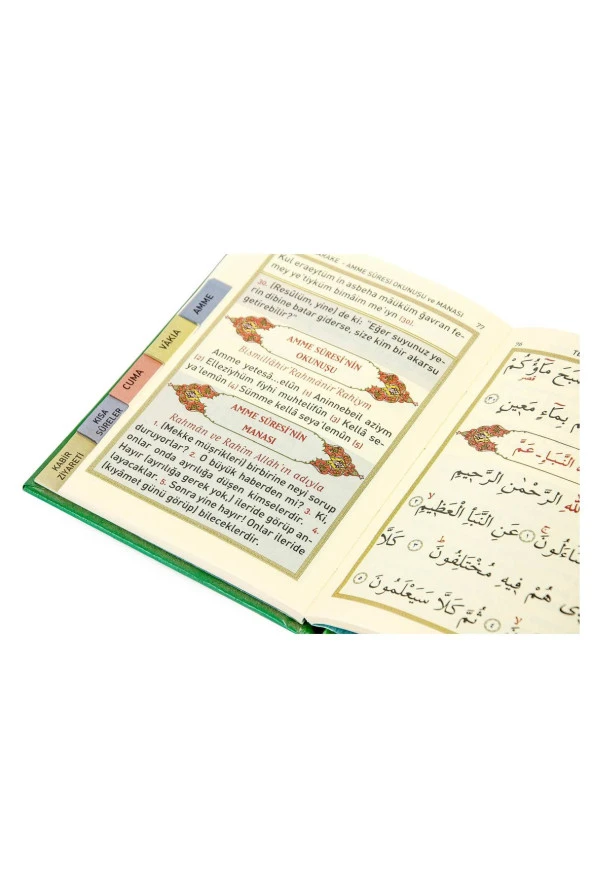 AMME
VÂKIA
CUMA
KISA
SÛRELER
KABİR
ZİYARETİ
- AMME SÛRESİ OKUNUŞU ve MANASI
77
Kul eraeytüm in asbeha mâüküm ğavran fe-
mey ye'tiyküm bimâim me'ıyn [30].
30. [Resûlüm, yine] de ki: "Eğer suyunuz ye-
rin dibine batar giderse, size kim bir akarsu
getirebilir?"
AMME SÛRESİ'NİN
OKUNUŞU
Bismillâhir'Rahmânir'Rahıym
Amme yetesâ...elûn [1] Aninnebeil azıym
[2] Elleziyhüm fiyhi muhtelifûn [3] Kellâ se-
ya'lemûn [4] Sümme kellâ seya'lemûn [5]
AMME SÛRESİ'NİN
MANASI
Rahmân ve Rahîm Allâh'ın adıyla
1. [Mekke müşrikleri] birbirine neyi sorup
duruyorlar? 2. O büyük haberden mi? 3. Ki,
onlar onda ayrılığa düşen kimselerdir. 4.
Hayır [ayrılığa gerek yok,] ileride görüp an-
layacaklar. 5. Sonra yine hayır! Onlar ileride
[kıyâmet günü görüp] bileceklerdir.
76
مَآؤُكُمْ
بِمَآءٍ مَعِينٍ
النَّبَأِ - عَمَّ
الرَّحْمٰنِ الرَّحِيمِ
عَنِ النَّبَأِ الْعَظِيمِ
هُمْ فِيهِ مُخْتَلِفُونَ ٣ كَلَّا
ثُمَّ كَلَّا سَيَعْلَمُونَ ٥